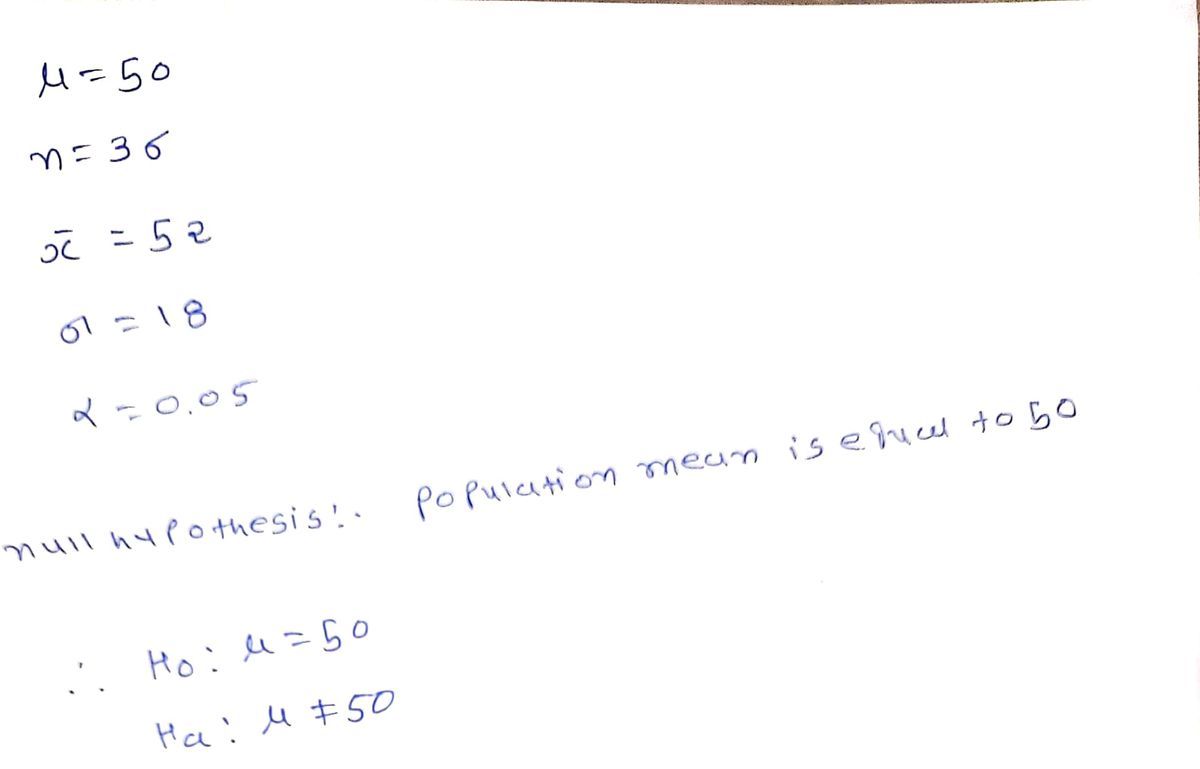 μ = 50
n = 36
x̄ = 52
σ = 18
α = 0.05
null hypothesis:. population mean is equal to 50
∴ H0: μ = 50
Ha: μ ≠ 50